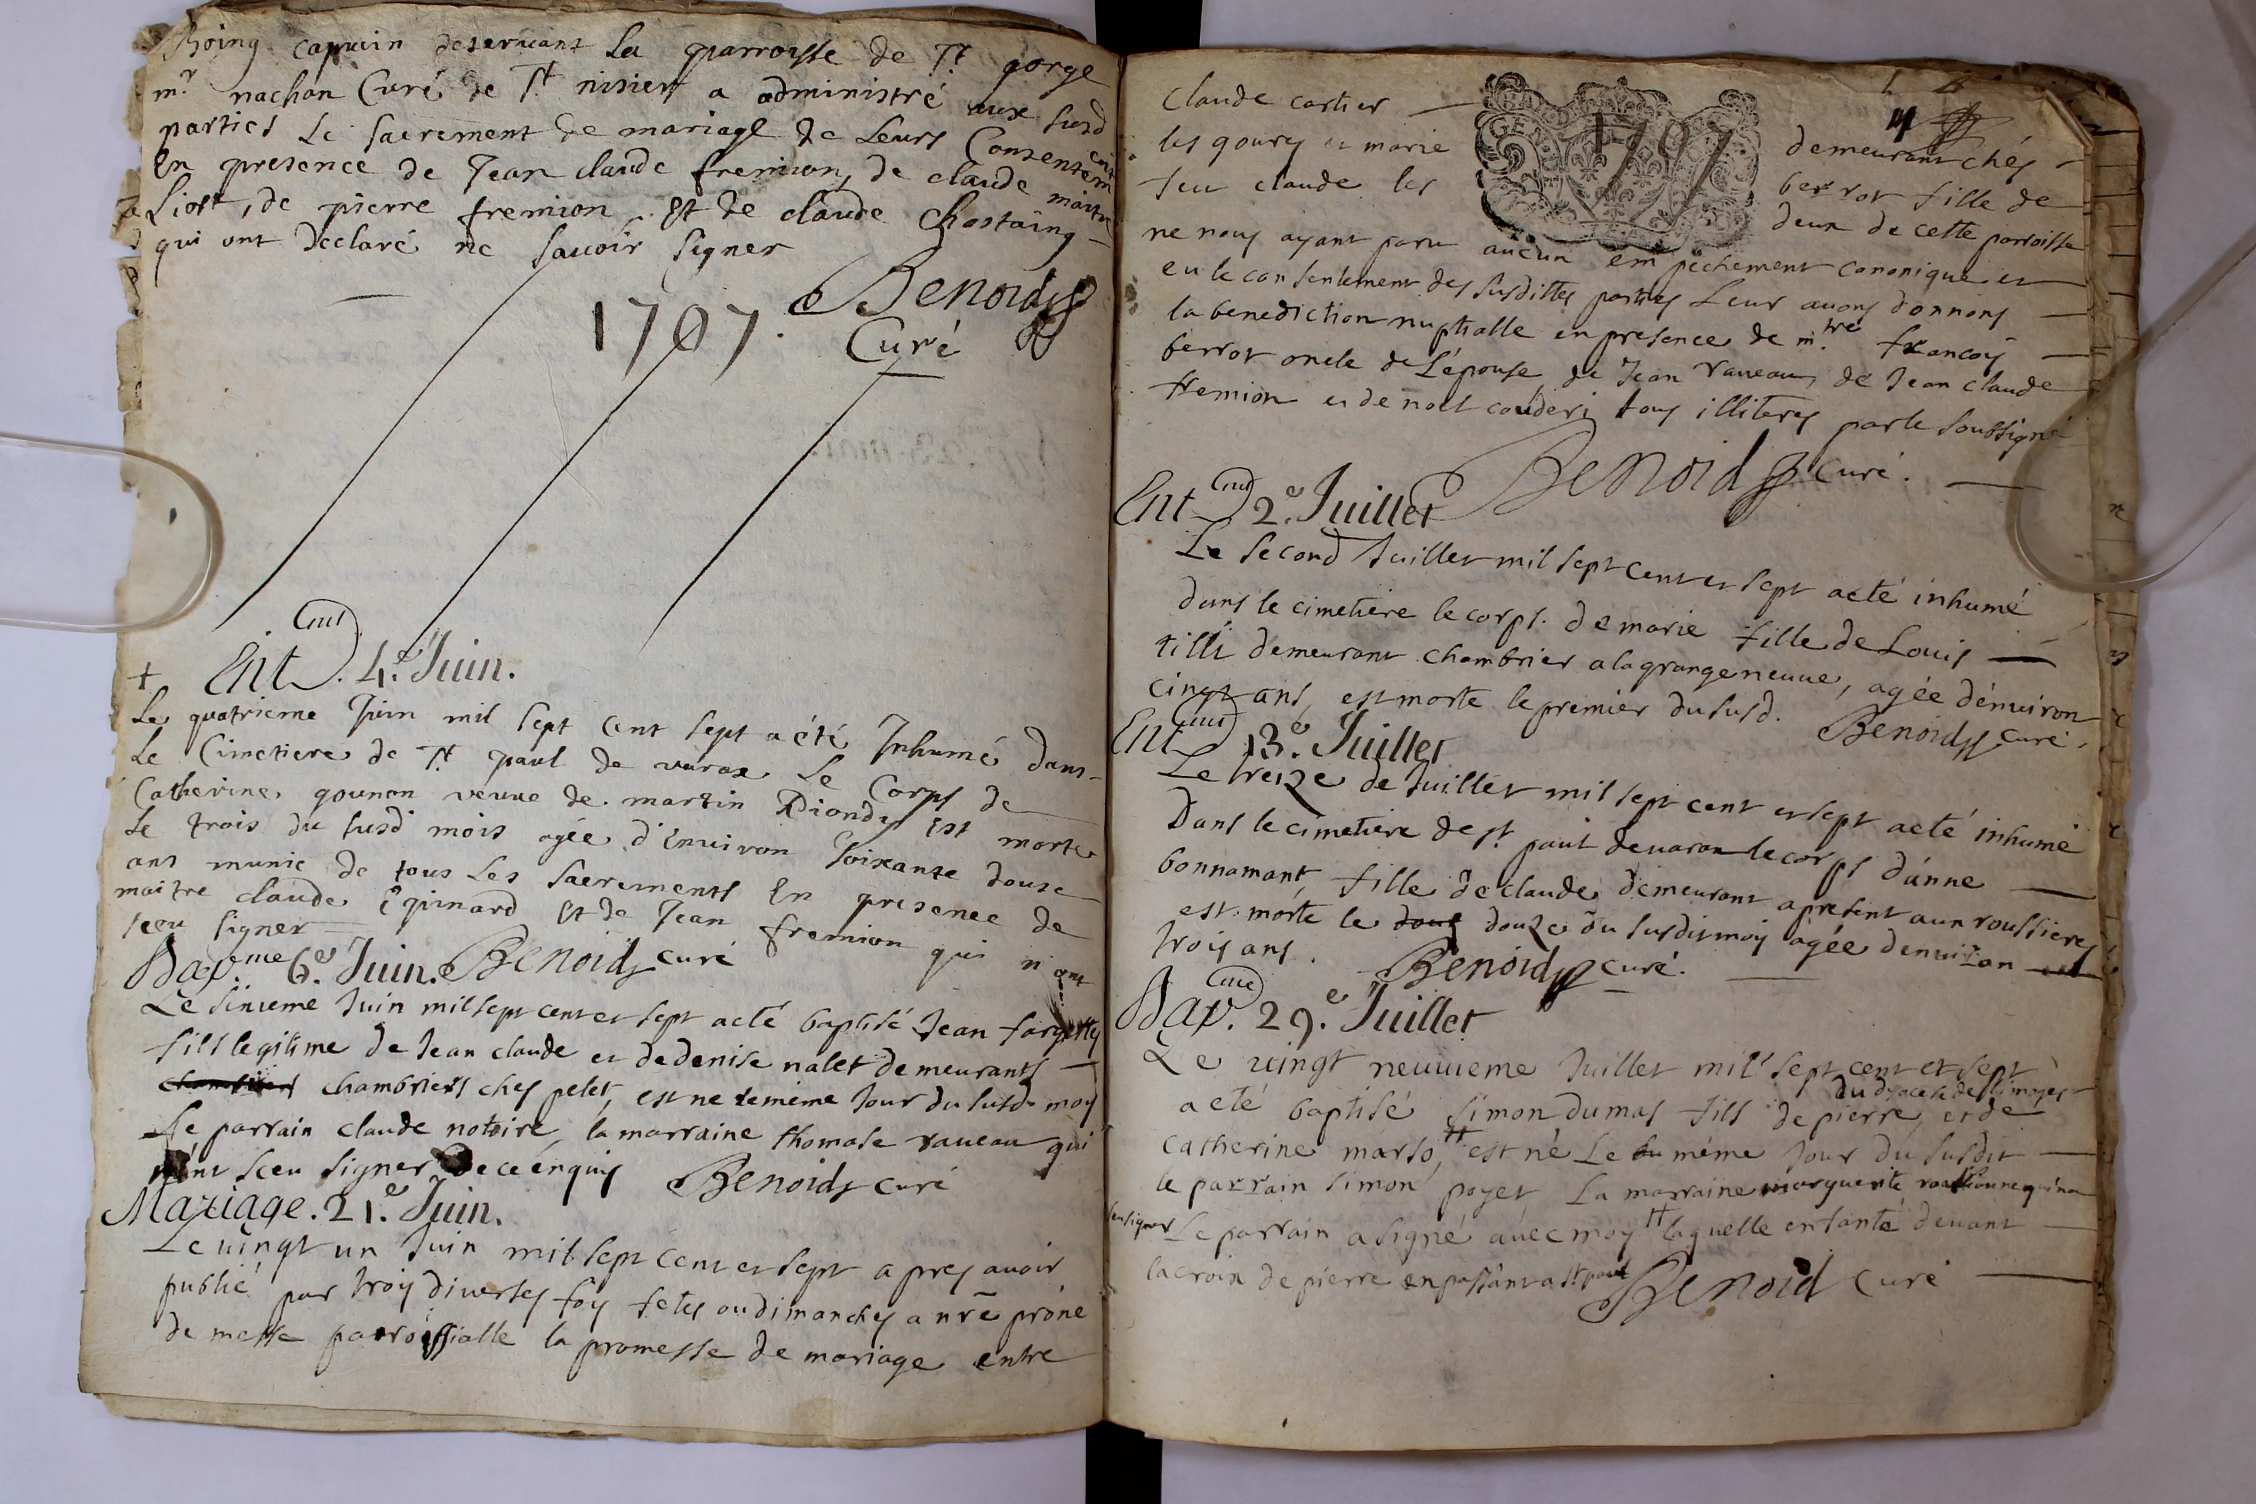 capucin deservant La parroisse de St gorge
mr. nachon Curé de St nisier a administré aux susd
parties Le sacrement de mariage de Leurs Consentem ent
En presence de Jean claude fremion, de claude
Liost, de pierre fremion, Et de claude Chastaing
qui ont declaré ne savoir signer
Benoid
1707. Curé
Ent. 4e. Juin.
+
Le quatrieme Juin mil sept cent sept a été Inhumé dans
Le Cimetiere de St paul de varax Le Corps de
Catherine gounon veuve de martin Diondy Est morte
Le trois du susd mois agée d'Environ soixante douze
ans munie de tous Les sacrements En presence de
maitre claude Epinard Et de Jean fremion qui n'ont
sceu signer
Benoid curé
Bap.eme 6e. Juin.
Le sixieme Juin mil sept cent et sept a eté baptisé Jean
fils legitime de Jean claude et de denise nalet demeurants
chambriers ches pelet, est ne le même Jour du susd. moy
Le parrain claude notoire, la marraine thomase raveau qui
n'ont sceu signer de ce enquis Benoid curé
Mariage. 21.e Juin.
Le vingt un Juin mil sept cent et sept apres avoir
publié par trois diverses foy fetes ou dimanches a nrē prône
de messe parroissialle la promesse de mariage entre
Claude cartier demeurant chés
les gourg et marie berrot fille de
feu claude les deux de cette parroisse
ne nous ayant paru aucun empechement canonique et
eu le consentement des susdittes parties Leur avons donnons
la benediction nuptialle en presence de m.tre francoy
berrot oncle de L'épouse, de Jean raveau, de Jean claude
fremion et de noel couderi tous illiteres par le soubsigné
Benoid curé.
1707
4
Ent 2.e Juillet
Le second Juillet mil sept cent et sept a eté inhumé
dans le cimetiere le corps. de marie fille de Louis
tilli demeurant chambrier a la grange neuve, agée d'environ
cinq ans, est morte le premier du susd. Benoid curé.
Ent 13.e Juillet
Le treize de Juillet mil sept cent et sept a eté inhumé
Dans le cimetiere de st. paul de varax le corps d'anne
bonnamant, fille de claude demeurant a present aux roussieres
est morte le douze du susdit moy agée d'environ
trois ans. Benoid curé.
Bap. 29.e Juillet
Le vingt neuvieme Juillet mil sept cent et sept
du diocese de limoges
a eté baptisé simon dumas fils de pierre et de
Catherine marso, est né Le même Jour du susdit
le parrain simon poyet La marraine marguerite
seu signer Le parrain a signé avec moy laquelle enfanté devant
la croix de pierre en passant a st paul Benoid curé